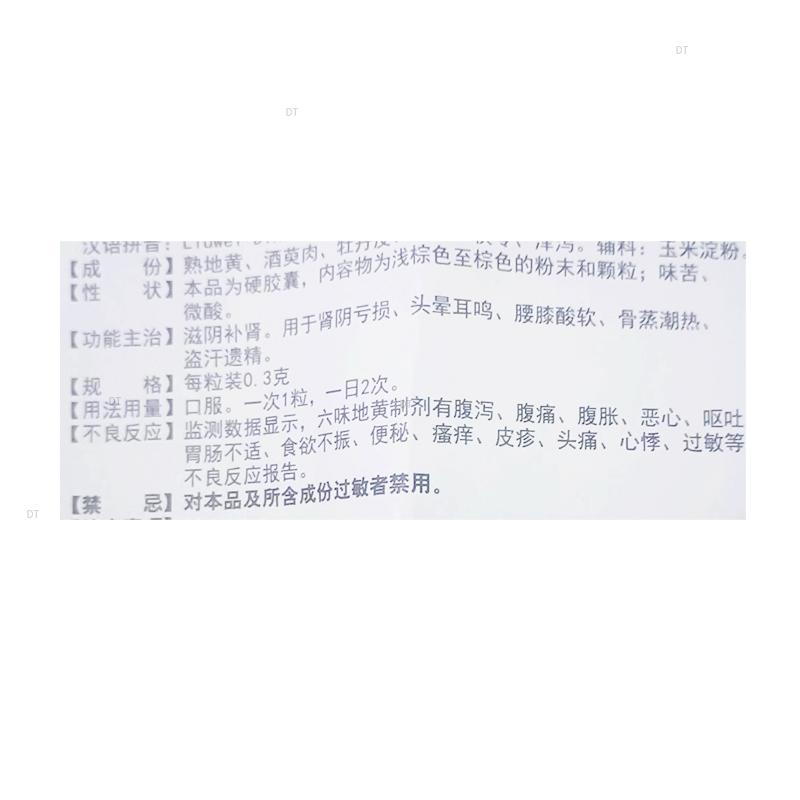 DT
DT
汉语拼音：Liuwei
【成　　份】熟地黄、酒萸肉、牡丹皮、茯苓、泽泻。辅料：玉米淀粉。
【性　　状】本品为硬胶囊，内容物为浅棕色至棕色的粉末和颗粒；味苦、
微酸。
【功能主治】滋阴补肾。用于肾阴亏损、头晕耳鸣、腰膝酸软、骨蒸潮热、
盗汗遗精。
【规　　格】每粒装0.3克
【用法用量】口服。一次1粒，一日2次。
【不良反应】监测数据显示，六味地黄制剂有腹泻、腹痛、腹胀、恶心、呕吐
胃肠不适、食欲不振、便秘、瘙痒、皮疹、头痛、心悸、过敏等
不良反应报告。
【禁　　忌】对本品及所含成份过敏者禁用。
DT